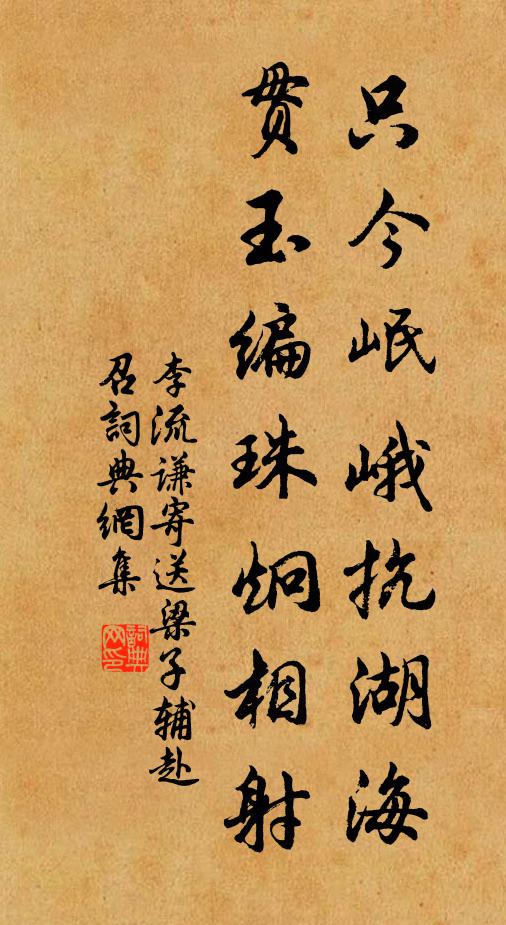 只今岷峨抗湖海
贯玉编珠炯相射
李流谦寄送梁子辅赴
召词典网集
詞典网印